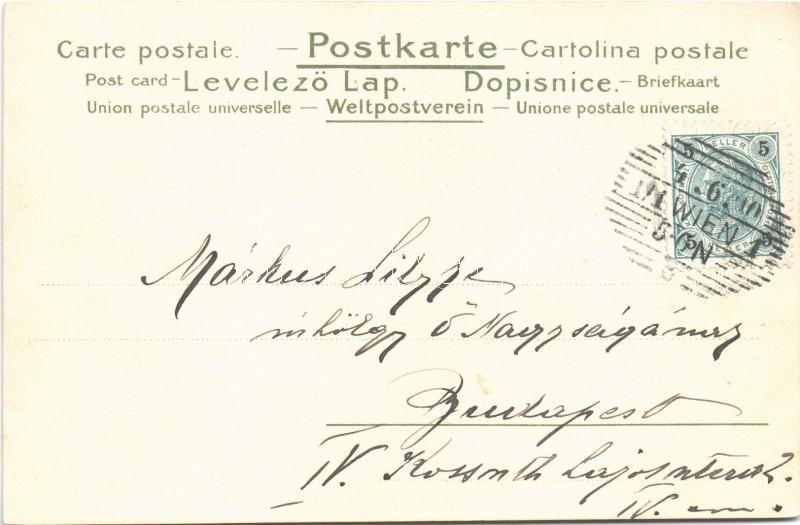 Carte postale. — Postkarte — Cartolina postale
Post card — Levelező Lap. Dopisnice. — Briefkaart
Union postale universelle — Weltpostverein — Unione postale universale
5 HELLER 5
WIEN 1
5 5
Márkus Lilyze
úrhölgy Ő Nagyságának
Budapest
IV. Kossuth Lajos utcza 2.
IV. em.